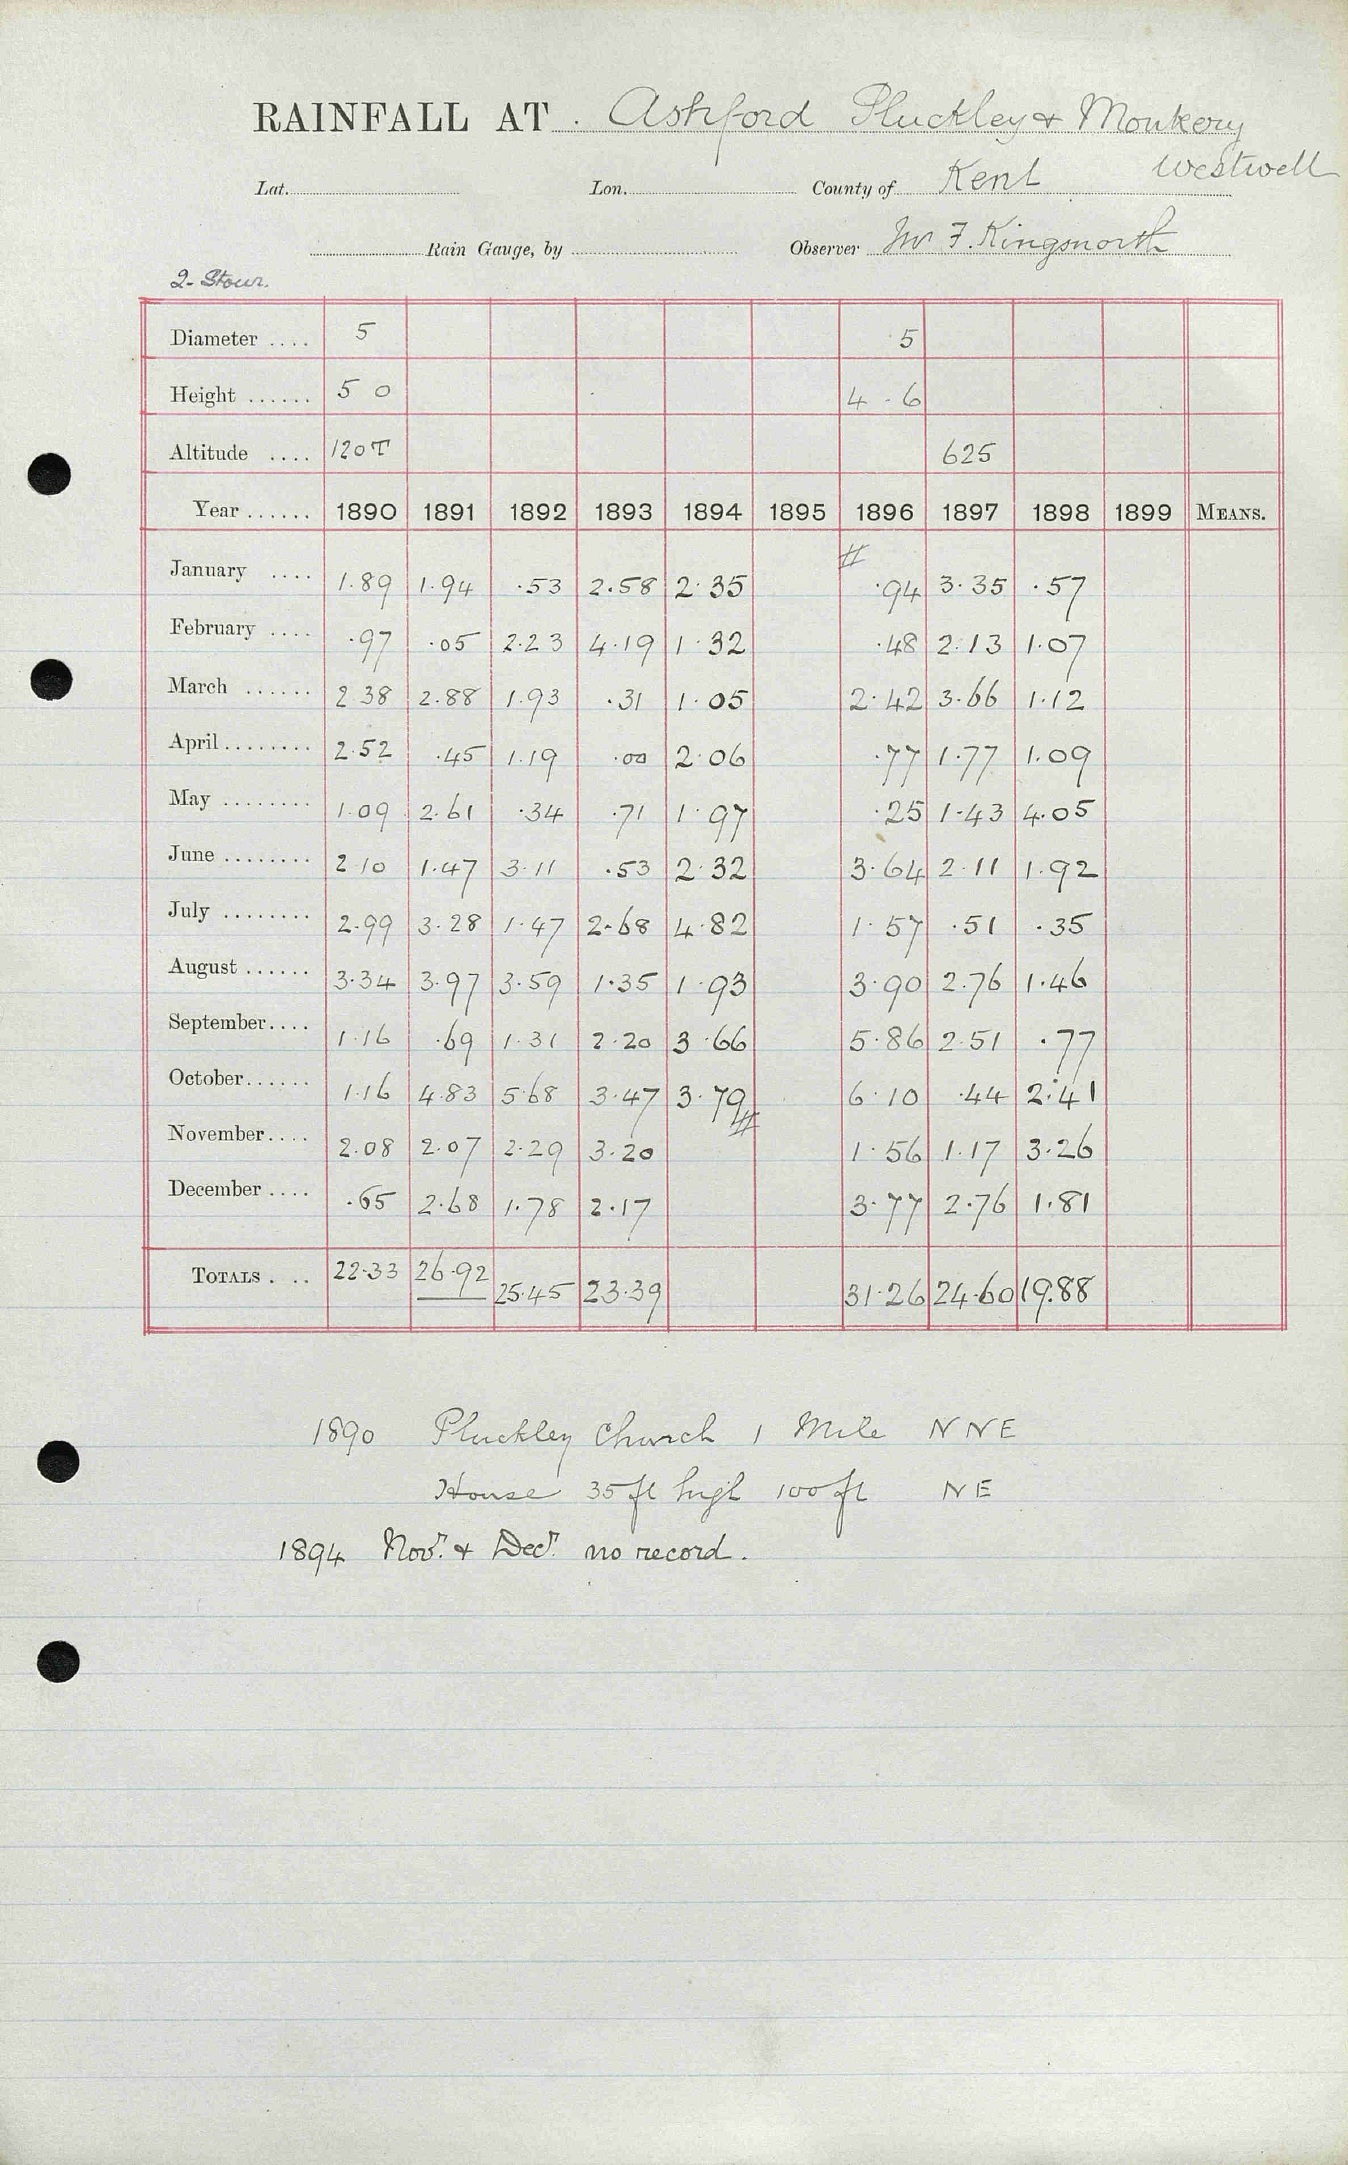 RAINFALL AT . Ashford Pluckley & Monkery
Westwell
Lat. Lon. County of Kent
Rain Gauge, by Observer Mr F. Kingsnorth
2- Stour.
Diameter .... 5 5
Height ...... 5 0 4 - 6
Altitude .... 120T 625
Year ...... 1890 1891 1892 1893 1894 1895 1896 1897 1898 1899 MEANS.
#
January .... 1.89 1.94 .53 2.58 2.35 .94 3.35 .57
February .... .97 .05 2.23 4.19 1.32 .48 2.13 1.07
March ...... 2.38 2.88 1.93 .31 1.05 2.42 3.66 1.12
April ........ 2.52 .45 1.19 .00 2.06 .77 1.77 1.09
May ........ 1.09 2.61 .34 .71 1.97 .25 1.43 4.05
June ........ 2.10 1.47 3.11 .53 2.32 3.64 2.11 1.92
July ........ 2.99 3.28 1.47 2.68 4.82 1.57 .51 .35
August ...... 3.34 3.97 3.59 1.35 1.93 3.90 2.76 1.46
September.... 1.16 .69 1.31 2.20 3.66 5.86 2.51 .77
October...... 1.16 4.83 5.68 3.47 3.79 6.10 .44 2.41
#
November.... 2.08 2.07 2.29 3.20 1.56 1.17 3.26
December .... .65 2.68 1.78 2.17 3.77 2.76 1.81
TOTALS . .. 22.33 26.92 25.45 23.39 31.26 24.60 19.88
1890 Pluckley Church 1 Mile N N E
House 35 ft high 100 ft N E
1894 Novr. & Decr. no record.